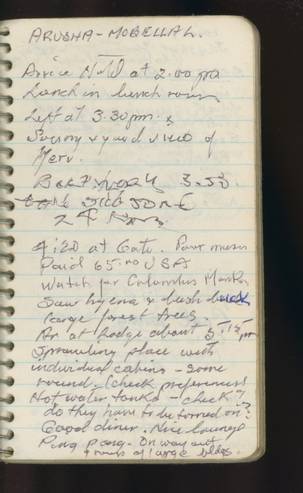 ARUSHA - MOBELLAL.
Arrive at 2.00 pm
Lunch in lunch room
Left at 3.30 pm.
Sunny & good view of
Meru.
3.55
4:20 at Gate.
Paid 65.00 USA
Watch for Columbus Monkey
Saw hyena & bush buck
large forest trees.
Arr at Lodge about 5.15 pm
Sprawling place with
individual cabins - some
round. (check preferences)
Hot water tanks - (check?
do they have to be turned on?)
Good diner. Nice lounge
Ping pong. On way out
of large bldg.